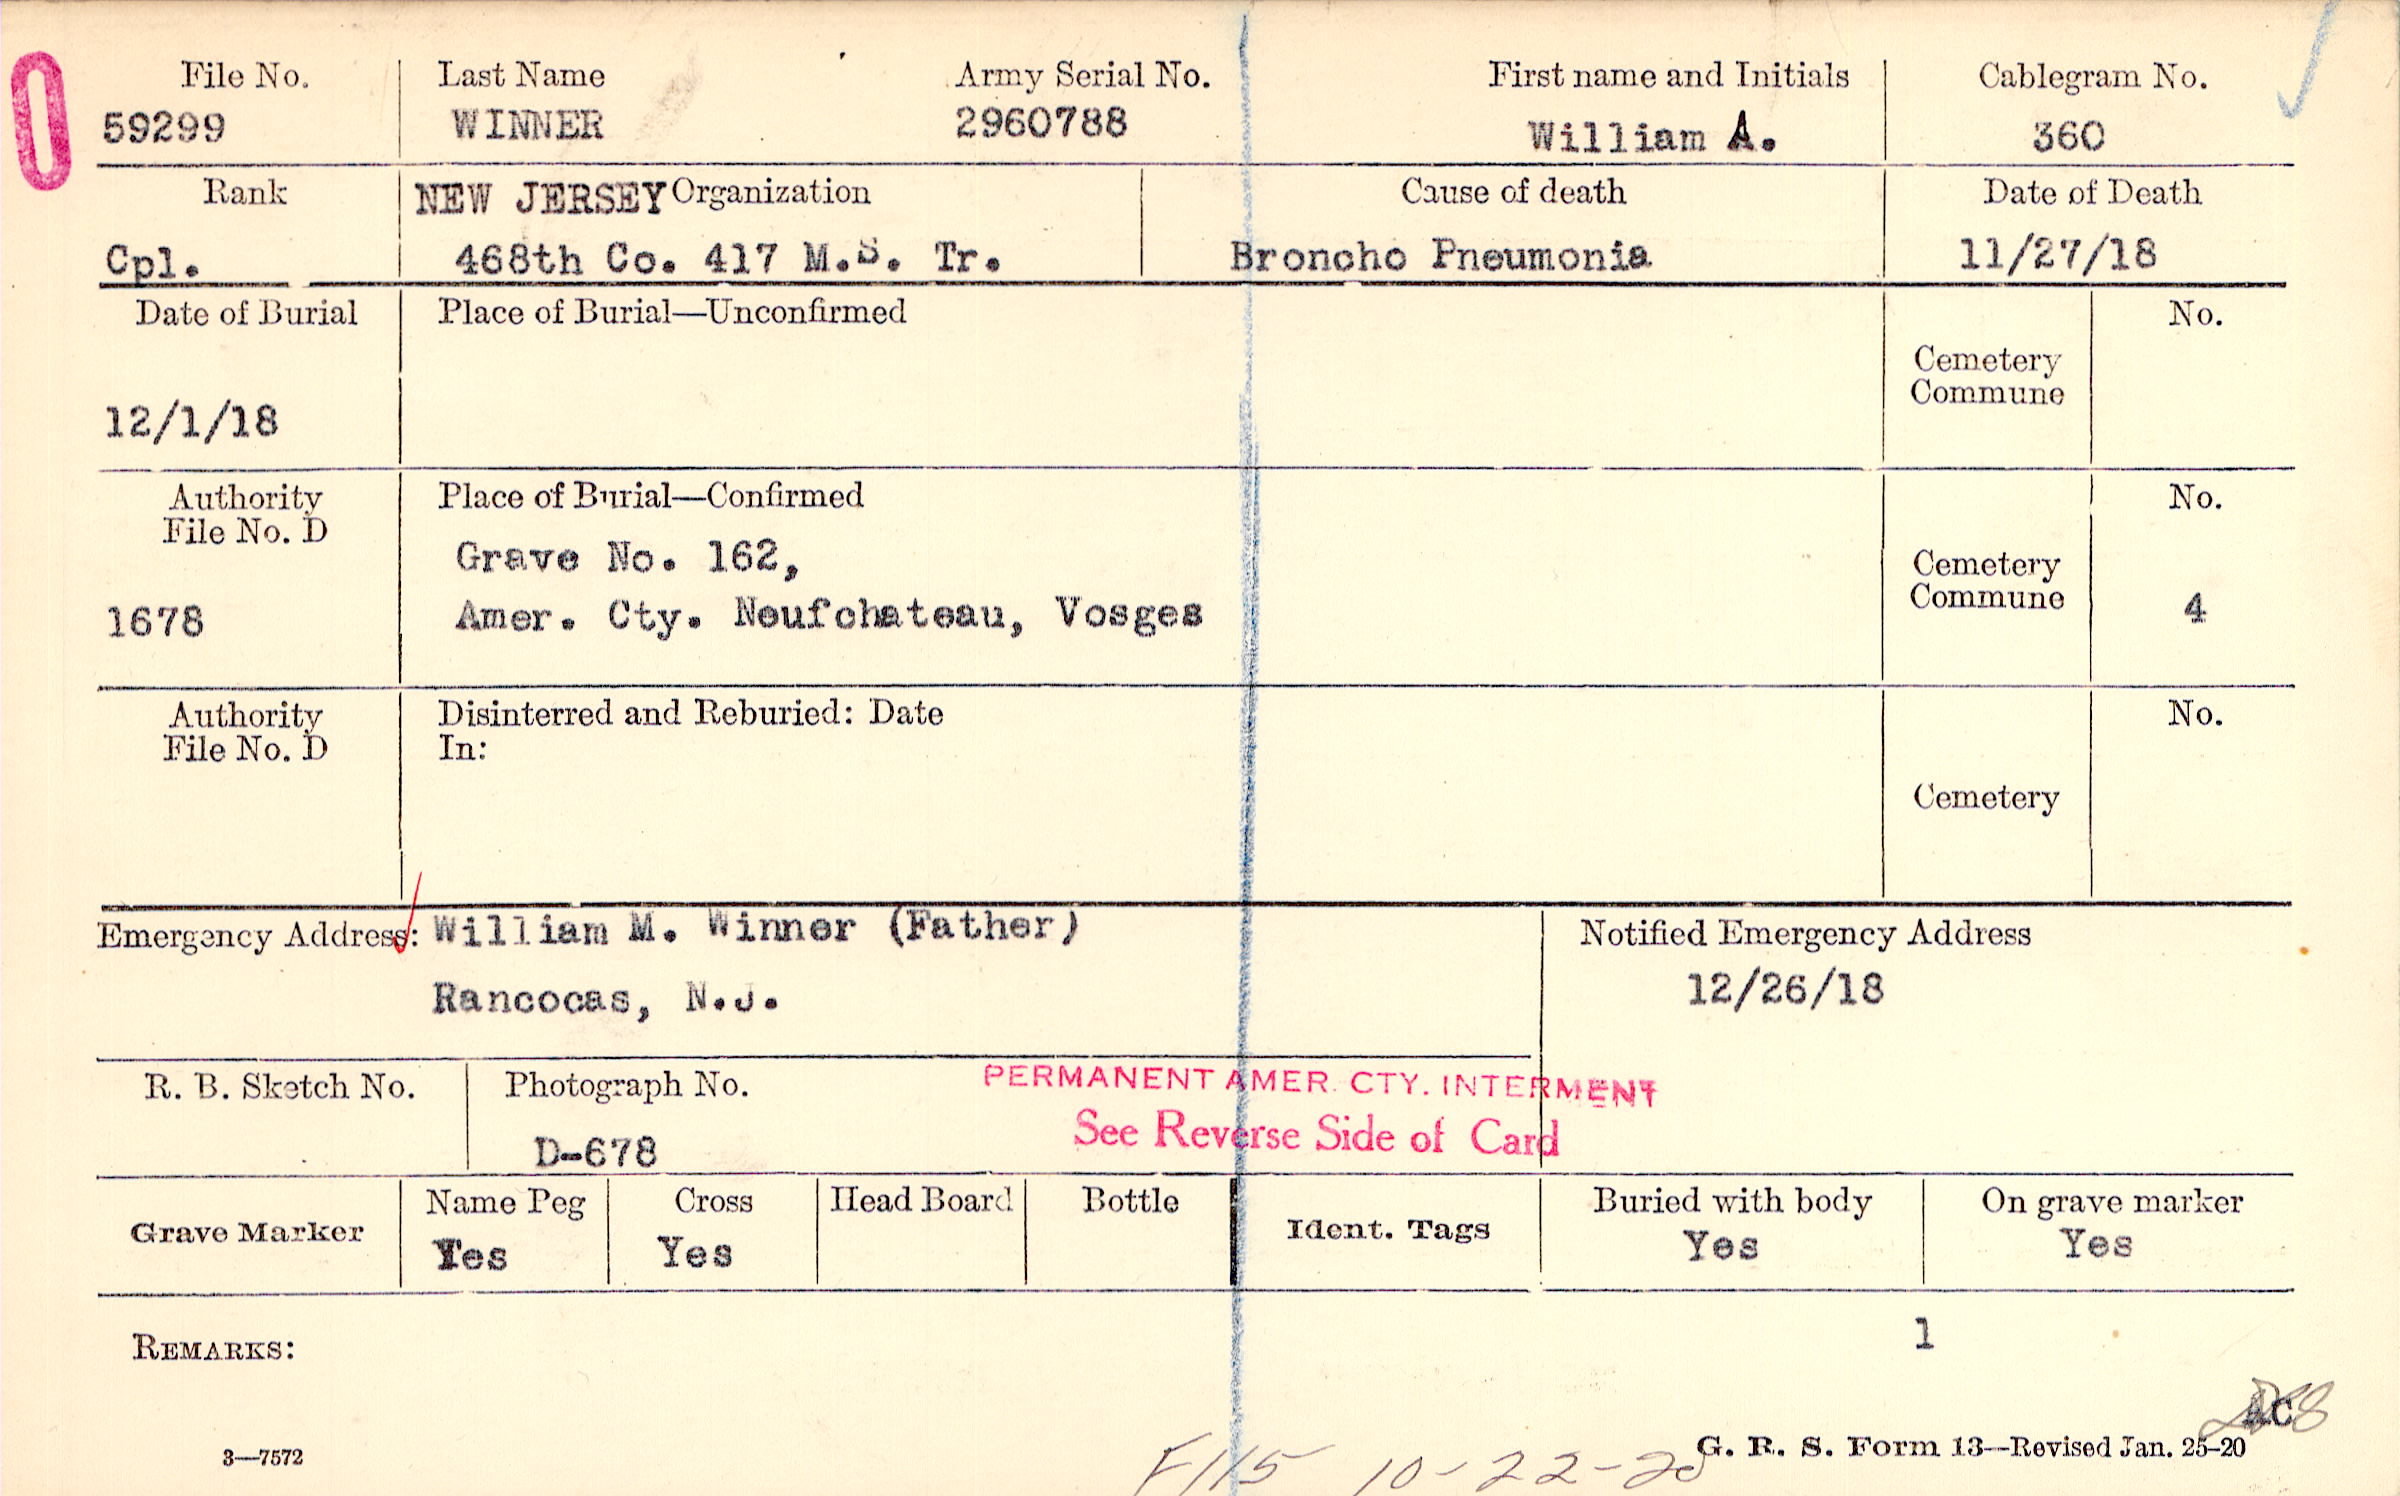 File No. Last Name Army Serial No. First name and Initials Cablegram No.
59299 WINNER 2960788 William A. 360
Rank NEW JERSEY Organization Cause of death Date of Death
Cpl. 468th Co. 417 M.S. Tr. Broncho Pneumonia 11/27/18
Date of Burial Place of Burial—Unconfirmed No.
Cemetery
Commune
12/1/18
Authority Place of Burial—Confirmed No.
File No. D
Grave No. 162,
Cemetery
Commune
1678 Amer. Cty. Neufchateau, Vosges 4
Authority Disinterred and Reburied: Date No.
File No. D In:
Cemetery
Emergency Address: William M. Winner (Father) Notified Emergency Address
Rancocas, N.J. 12/26/18
R. B. Sketch No. Photograph No. PERMANENT AMER. CTY. INTERMENT
See Reverse Side of Card
D-678
Grave Marker Name Peg Cross Head Board Bottle Ident. Tags Buried with body On grave marker
Yes Yes Yes Yes
1
REMARKS:
3—7572 G. R. S. Form 13—Revised Jan. 25-20
F115 10-22-25